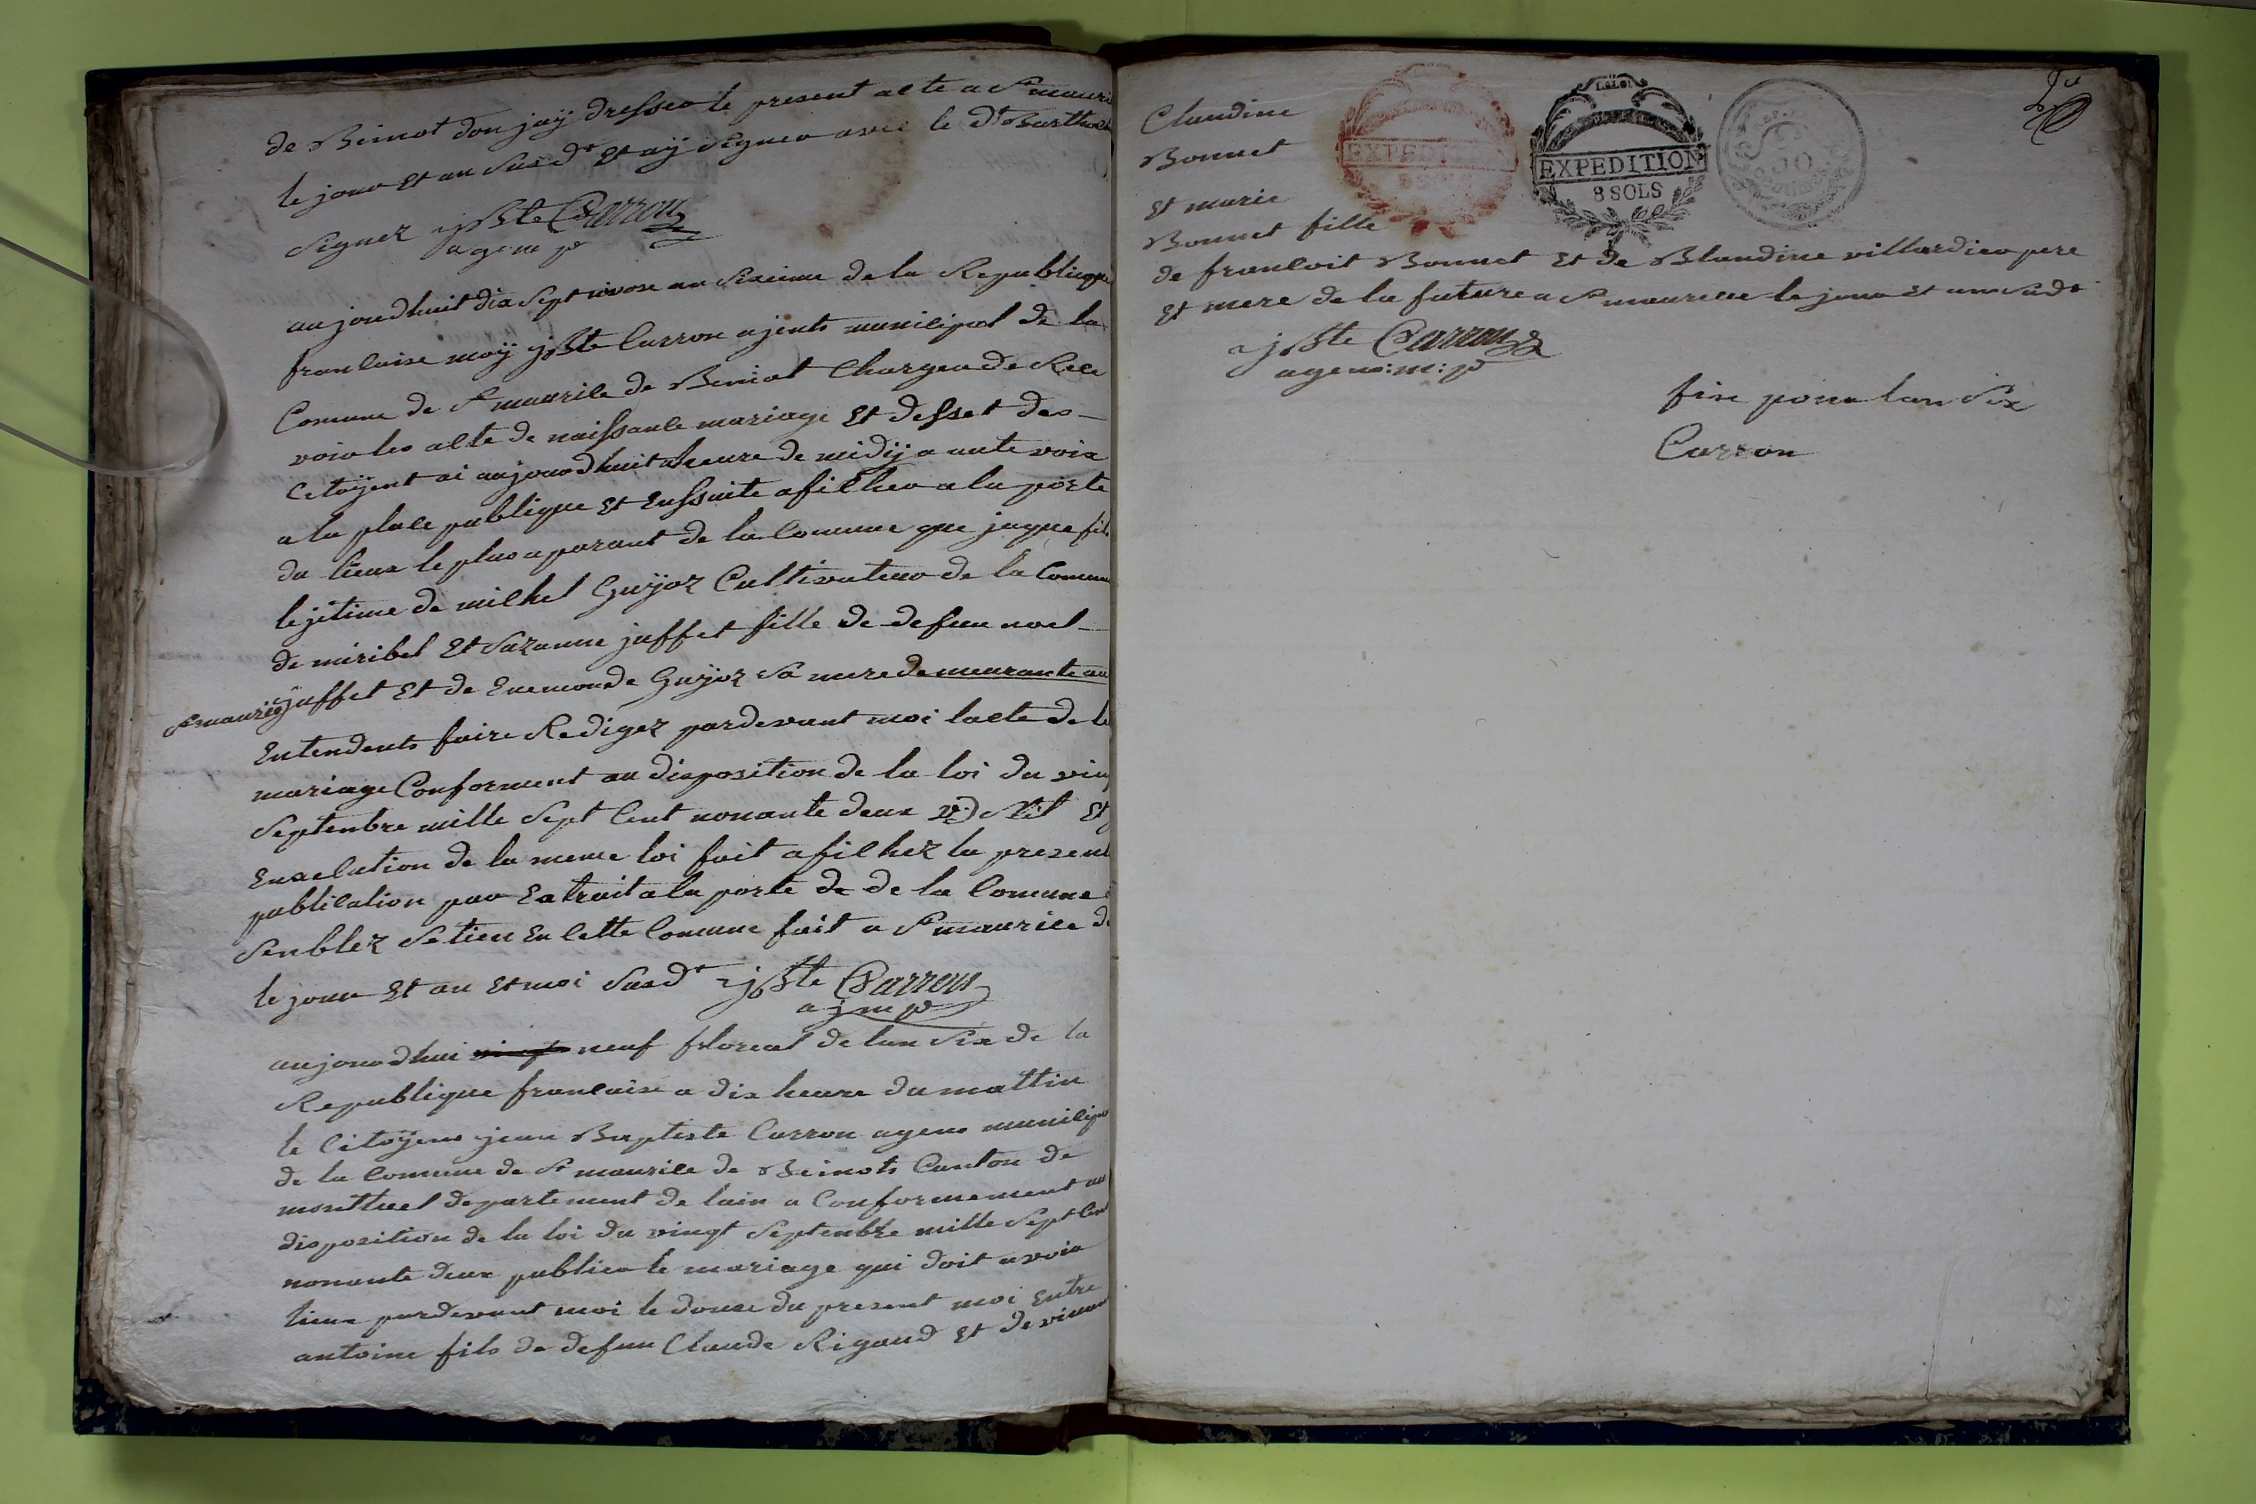 de Beinot don jaÿ dresser le present acte a St mauri
le jour Et an susdt Et aÿ signer avec le dt Barthel
signez jBte Carron
agem p
aujourdhuit dix sept nivose an sixieme de la Republique
francaise moÿ jBte Carron ajents municipal de la
Comune de St maurice de Beinot Charger de Rece
voir les acte de naissance mariage Et desset des
Citoÿent ai aujourdhuit a heure de midij a aute voix
a la place publique Et Ensuite aficher a la porte
du lieux le plus aparant de la Comune que jaque fils
lejitime de michel Guÿoz Cultivateur de la Comune
de miribel Et suzanne juffet fille de defun noel
St maurice juffet Et de Enemonde Guÿoz sa mere demeurante au
Entendents faire Rediger pardevant moi lacte de le
mariage Conforment au disposition de la loi du ving
septenbre mille sept Cent nonante deux Et
Execution de la meme loi fait aficher la present
publication par Extrait a la porte de de la Comune
senblez se tien En Cette Comune fait a St maurice de
le jour Et an Et moi susdt jBte Carron
ajm p
aujourdhui vingt neuf floreal de lan six de la
Republique francaise a dix heure du mattin
le Citoÿens jean Baptiste Carron agens municipa
de la Comune de St maurice de Beinots Canton de
montluel departement de lain a Conformement au
disposition de la loi du vingt septenbre mille sept Cent
nonante deux publier le mariage qui doit avoir
lieux pardevant moi le douze du present moi Entre
antoine fils de defun Claude Rigaud Et de
Claudine
Bonnet
Et marie
Bonnet fille
de francoit Bonnet Et de Blandine villardier pere
Et mere de la future a St maurice le jour Et an susdt
jBte Carron
agens: m: p
fin pour lan six
Carron
LA LOI
EXPEDITION
8 SOLS
EXPEDITION